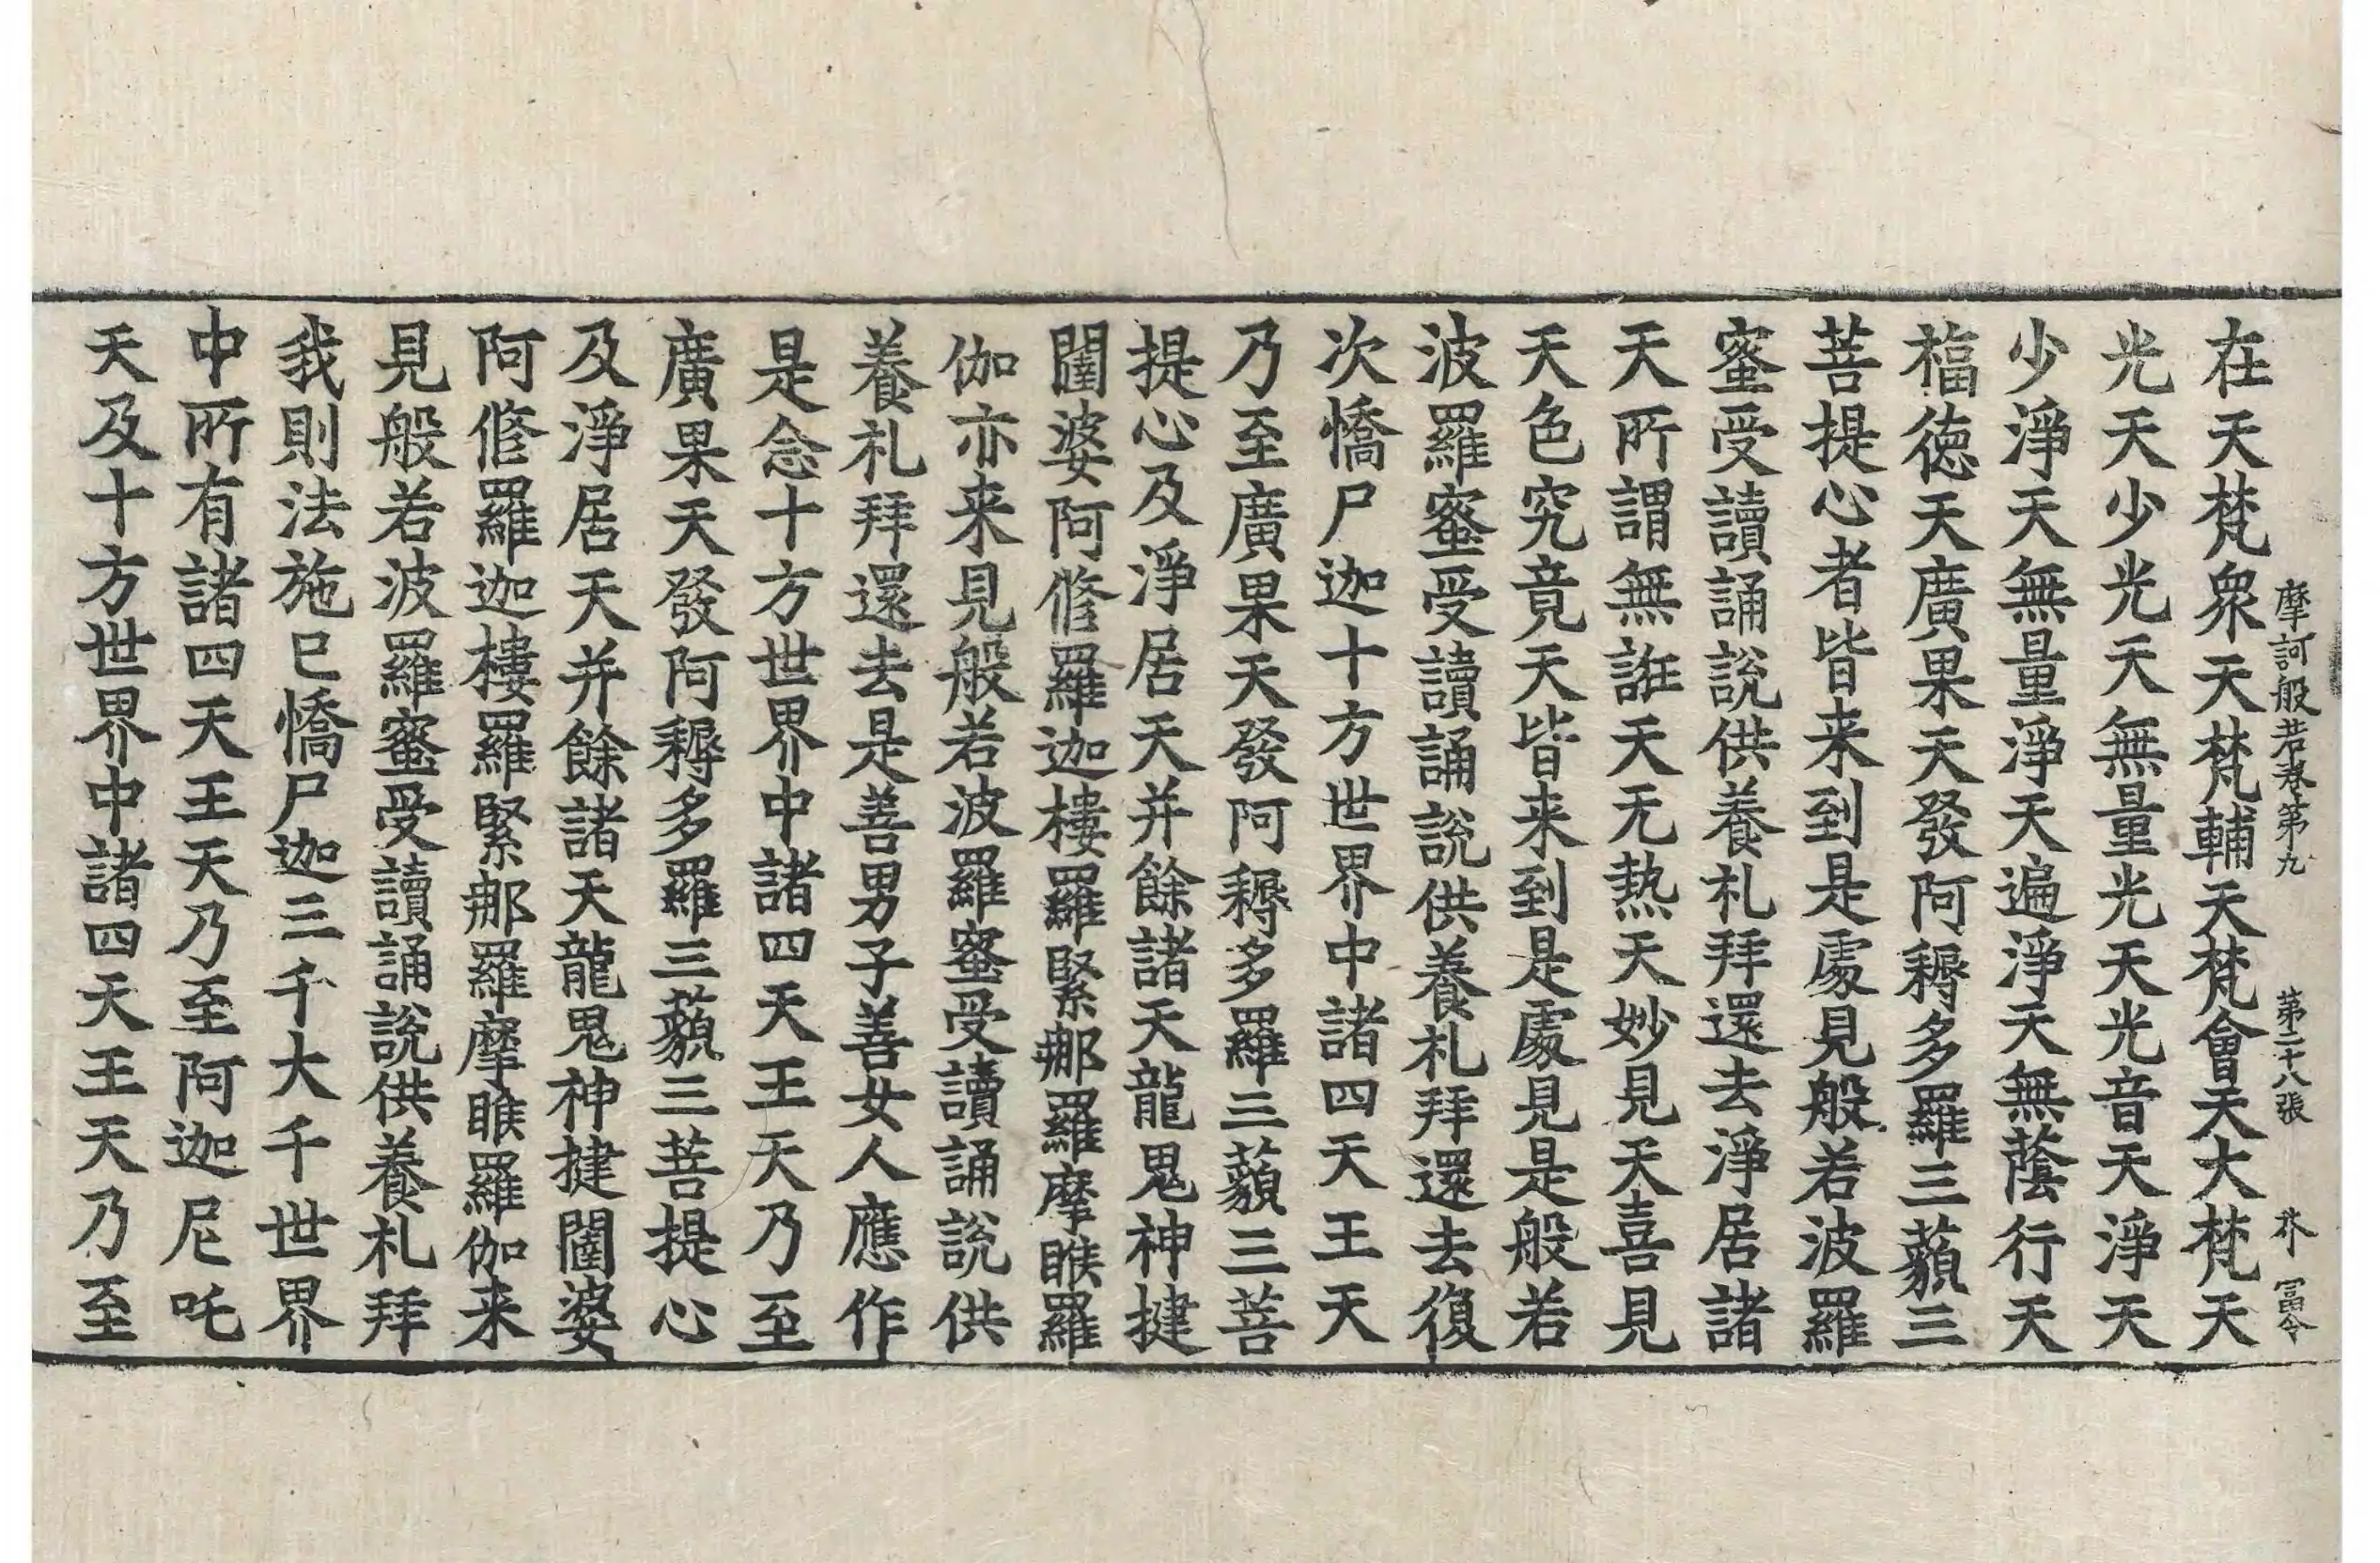 摩訶般若卷第九　第二十八張　芥　冨令
在天梵衆天梵輔天梵會天大梵天
光天少光天無量光天光音天淨天
少淨天無量淨天遍淨天無蔭行天
福德天廣果天發阿耨多羅三藐三
菩提心者皆来到是處見般若波羅
蜜受讀誦說供養礼拜還去淨居諸
天所謂無誑天无热天妙見天喜見
天色究竟天皆来到是處見是般若
波羅蜜受讀誦說供養礼拜還去復
次憍尸迦十方世界中諸四天王天
乃至廣果天發阿耨多羅三藐三菩
提心及淨居天并餘諸天龍鬼神揵
闥婆阿修羅迦樓羅緊那羅摩睺羅
伽亦来見般若波羅蜜受讀誦說供
養礼拜還去是善男子善女人應作
是念十方世界中諸四天王天乃至
廣果天發阿耨多羅三藐三菩提心
及淨居天并餘諸天龍鬼神揵闥婆
阿修羅迦樓羅緊那羅摩睺羅伽来
見般若波羅蜜受讀誦說供養礼拜
我則法施已憍尸迦三千大千世界
中所有諸四天王天乃至阿迦尼吒
天及十方世界中諸四天王天乃至